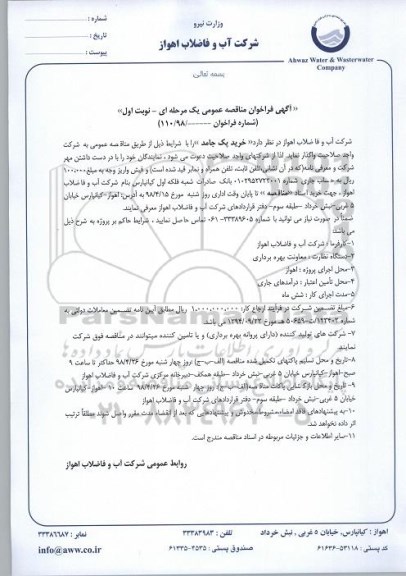 وزارت نیرو
شرکت آب و فاضلاب اهواز
شماره :
تاریخ :
پیوست :
Ahwaz Water & Wasterwater
Company
بسمه تعالی
«آگهی فراخوان مناقصه عمومی یک مرحله ای - نوبت اول»
(شماره فراخوان -------/۱۱۰/۹۸)
شرکت آب و فاضلاب اهواز در نظر دارد« خرید پک جامد »را با شرایط ذیل از طریق مناقصه عمومی به شرکت
واجد صلاحیت واگذار نماید. لذا از شرکتهای واجد صلاحیت دعوت می شود ، نمایندگان خود را با در دست داشتن مهر
شرکت و معرفی نامه(که در آن نشانی،تلفن ثابت، تلفن همراه و نمابر قید شده است) و فیش واریز وجه به مبلغ ۱۰۰۰۰۰۰
ریال به حساب جاری شماره ۰۱۰۲۹۵۲۷۲۲۰۰۱ بانک صادرات شعبه فلکه اول کیانپارس بنام شرکت آب و فاضلاب
اهواز ، جهت خرید اسناد «مناقصه » تا پایان وقت اداری روز شنبه مورخ ۹۸/۴/۱۵ به آدرس: اهواز-کیانپارس خیابان
۵ غربی-نبش خرداد -طبقه سوم- دفتر قراردادهای شرکت آب و فاضلاب اهواز معرفی نمایند.
ضمناً در صورت نیاز می توانید با شماره ۳۳۳۸۹۶۰۵- ۰۶۱ تماس حاصل نمایید . شرایط حاکم بر پروژه به شرح ذیل
می باشد
۱-کارفرما : شرکت آب و فاضلاب اهواز
۲-دستگاه نظارت : معاونت بهره برداری
۳-محل اجرای پروژه : اهواز
۴-محل تأمین اعتبار : درآمدهای جاری
۵-مدت اجرای کار : شش ماه
۶-مبلغ تضمین شرکت در فرآیند ارجاع کار: ۱,۰۰۰,۰۰۰,۰۰۰ ریال مطابق آیین نامه تضمین معاملات دولتی به
شماره ۱۲۳۴۰۲/ت۵۰۶۵۹ هـ مورخ ۱۳۹۴/۰۹/۲۲ می باشد
۷- شرکت های تولید کننده (دارای پروانه بهره برداری) و یا تامین کننده میتوانند در مناقصه فوق شرکت
نمایند
۸-تاریخ و محل تسلیم پاکتهای تکمیل شده مناقصه (الف-ب-ج) :روز چهار شنبه مورخ ۹۸/۴/۲۶ حداکثر تا ساعت ۹
صبح-اهواز-کیانپارس خیابان ۵ غربی -نبش خرداد -طبقه همکف-دبیرخانه مرکزی شرکت آب و فاضلاب اهواز
۹- تاریخ و محل بازگشایی پاکات مناقصه(الف-ب-ج): روز چهار شنبه مورخ ۹۸/۴/۲۶ ساعت ۱۰ -اهواز-کیانپارس
خیابان ۵ غربی-نبش خرداد -طبقه سوم- دفتر قراردادهای شرکت آب و فاضلاب اهواز
۱۰-به پیشنهادهای فاقد امضاء،مشروط،مخدوش و پیشنهادهایی که بعد از انقضاء مدت مقرر واصل شوند مطلقاً ترتیب
اثر داده نخواهد شد.
۱۱-سایر اطلاعات و جزئیات مربوطه در اسناد مناقصه مندرج است.
روابط عمومی شرکت آب و فاضلاب اهواز
اهواز : کیانپارس، خیابان ۵ غربی ، نبش خرداد
تلفن : ۳۳۳۸۳۹۸۳
نمابر : ۳۳۳۸۶۶۸۷
کد پستی : ۵۳۱۱۸-۶۱۶۳۶
صندوق پستی : ۳۵۳۵-۶۱۳۳۵
info@aww.co.ir